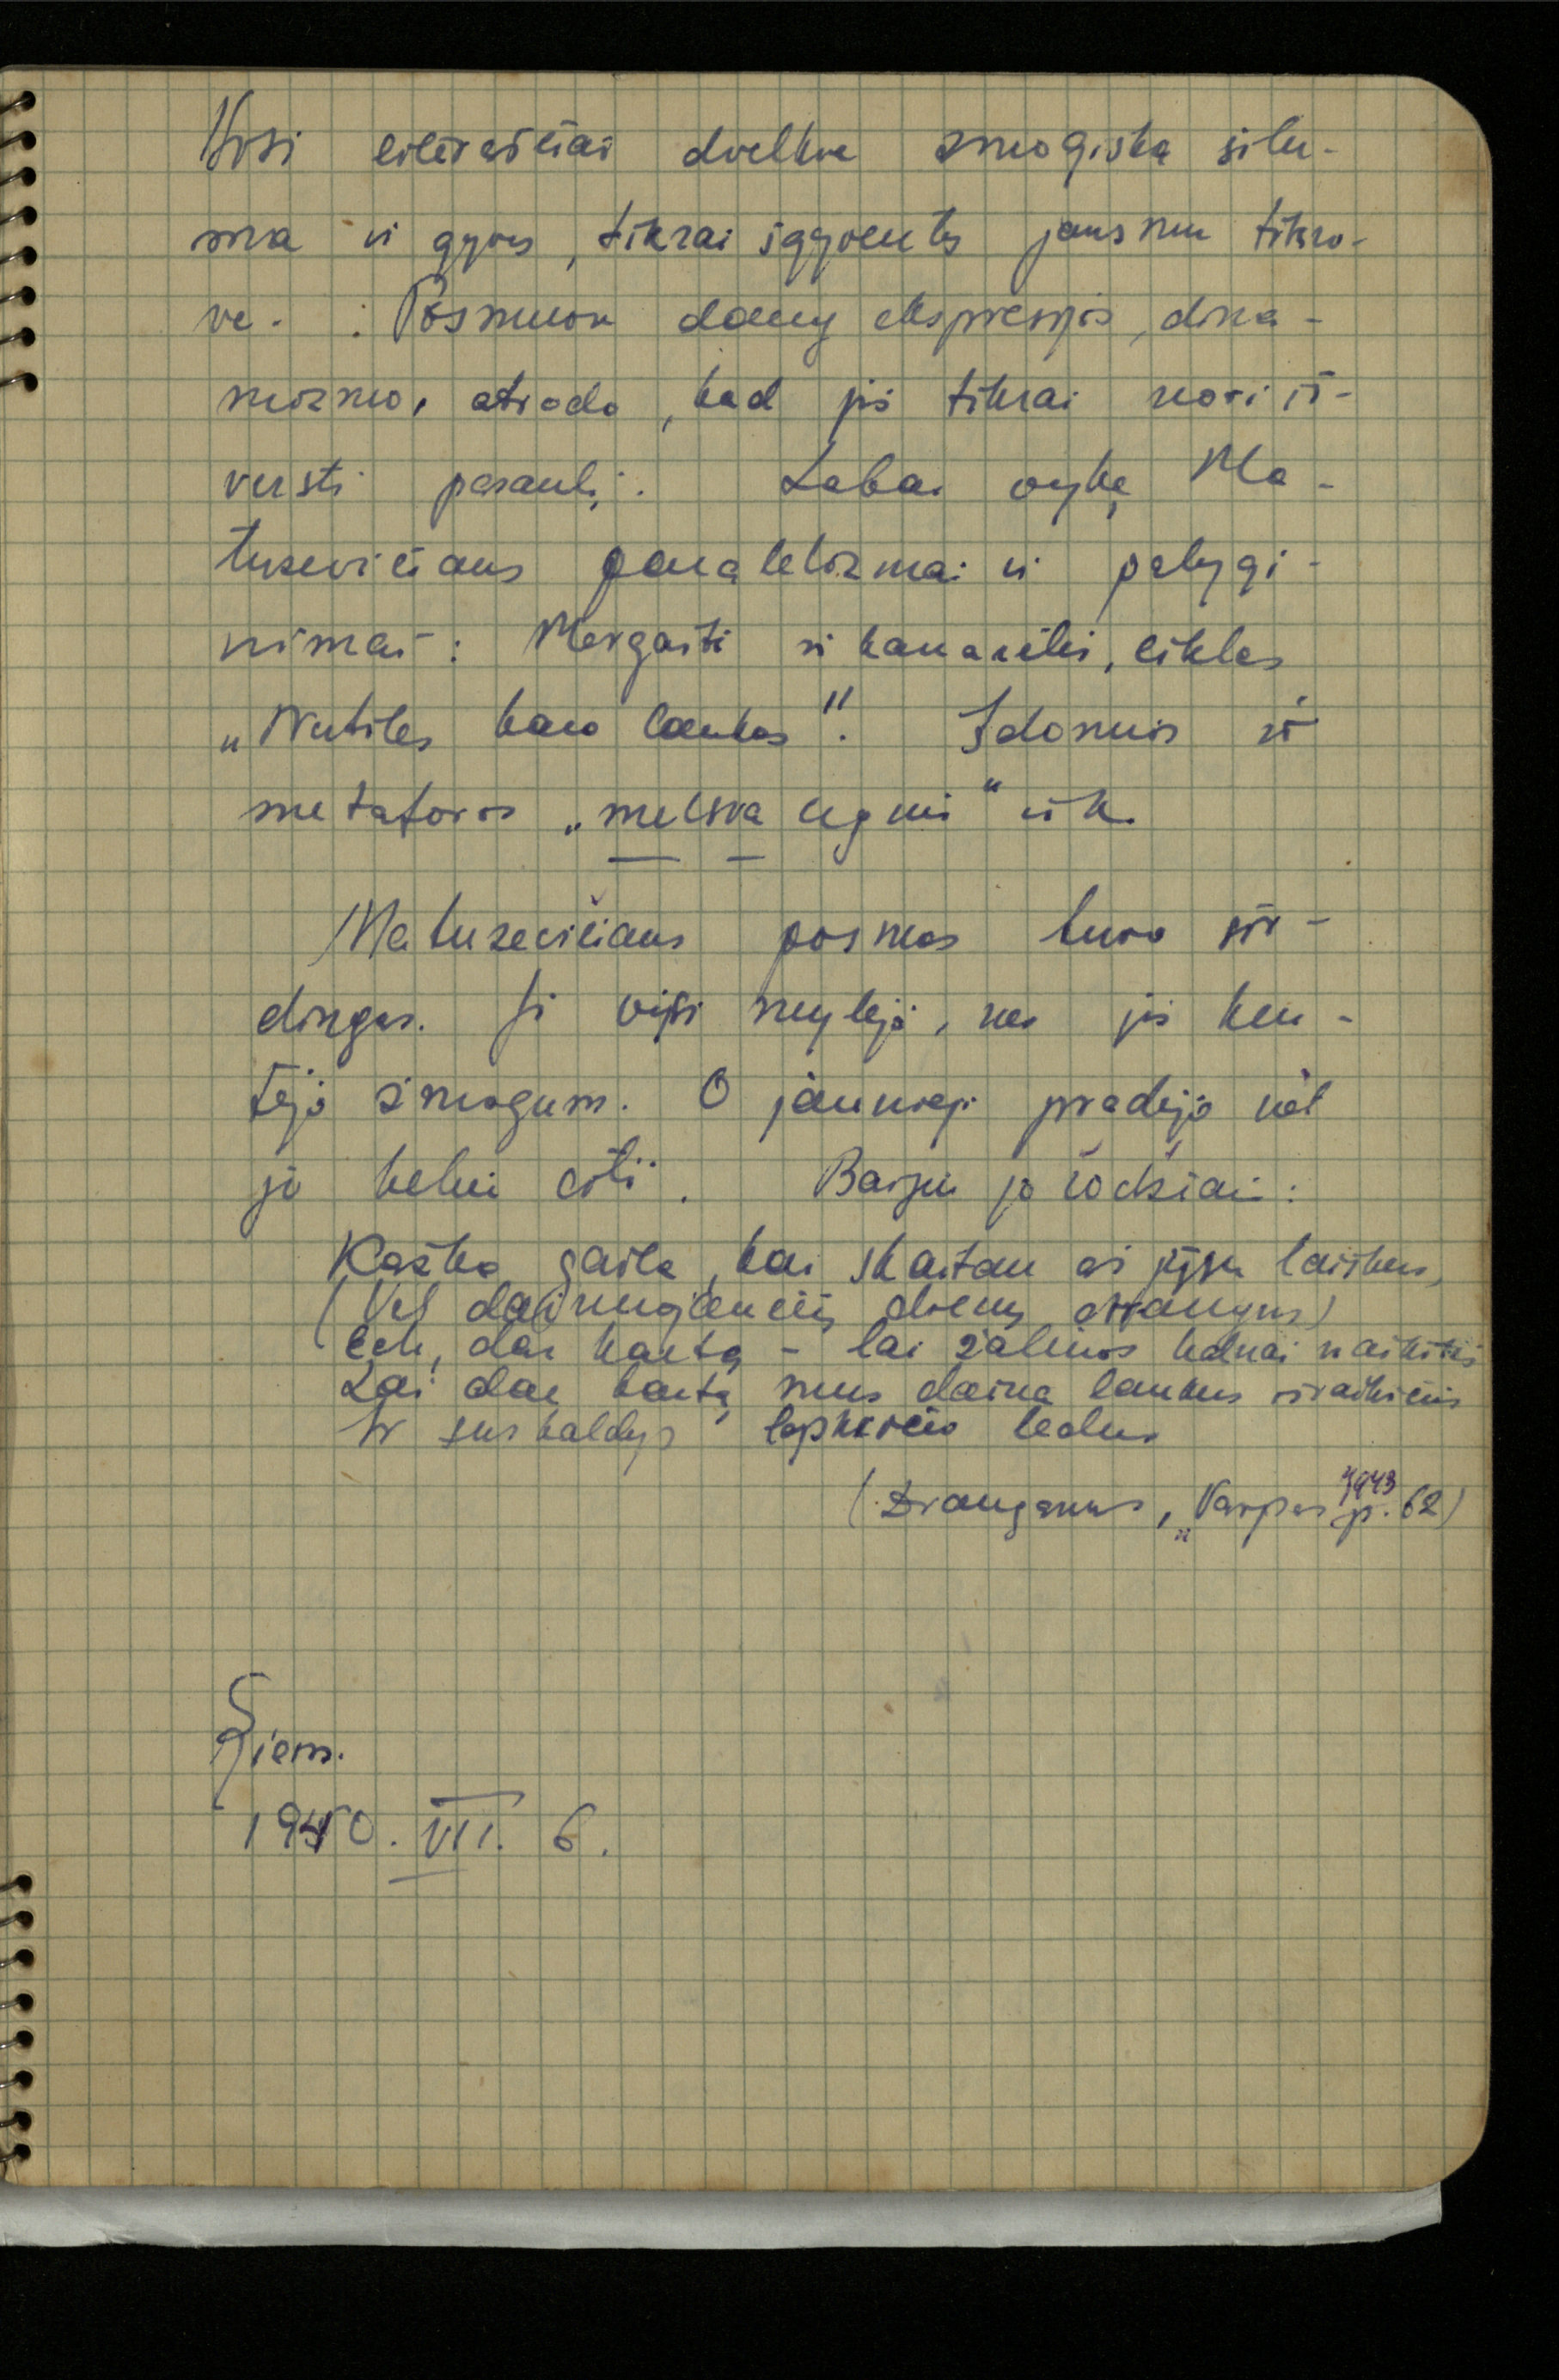 Visi eilėraščiai dvelkia žmogiška šilu-
ma ir gyva, tikrai išgyventa jausmu tikro-
ve. Posmuose daug ekspresijos, dina-
mizmo, atrodo, kad jis tikrai nori iš-
versti pasaulį. Labai vykę Ma-
tuzevičiaus paralelizmai ir palygi-
nimai: Mergaitė ir kanarėlė, eiklas
„Nutilęs karo laukas". Įdomios ir
metaforos „melsva ugnis" ir k.
Matuzevičiaus posmas buvo šir-
dingas. Jį visi mylėjo, nes jis ken-
tėjo žmogum. O jaunieji pradėjo net
jo keliu eiti. Baigiu jo žodžiais:
Kažko gaila, kai skaitau aš jūsų laiškus,
(Vėl dainuojančių dienų draugus)
Ech, dar kartą – lai žalinos kalnai
Lai dar kartą mus daina laukus
Ir suskaldys lapkričio ledus
(Draugams, „Varpas 1943 p. 62)
Žiem.
1950. VII. 6.